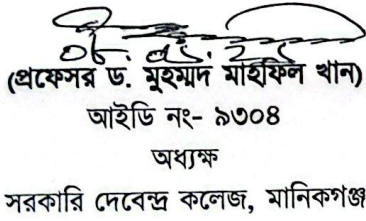 (প্রফেসর ড. মুহম্মদ মাহফিল খান)
আইডি নং- ৯৩০৪
অধ্যক্ষ
সরকারি দেবেন্দ্র কলেজ, মানিকগঞ্জ